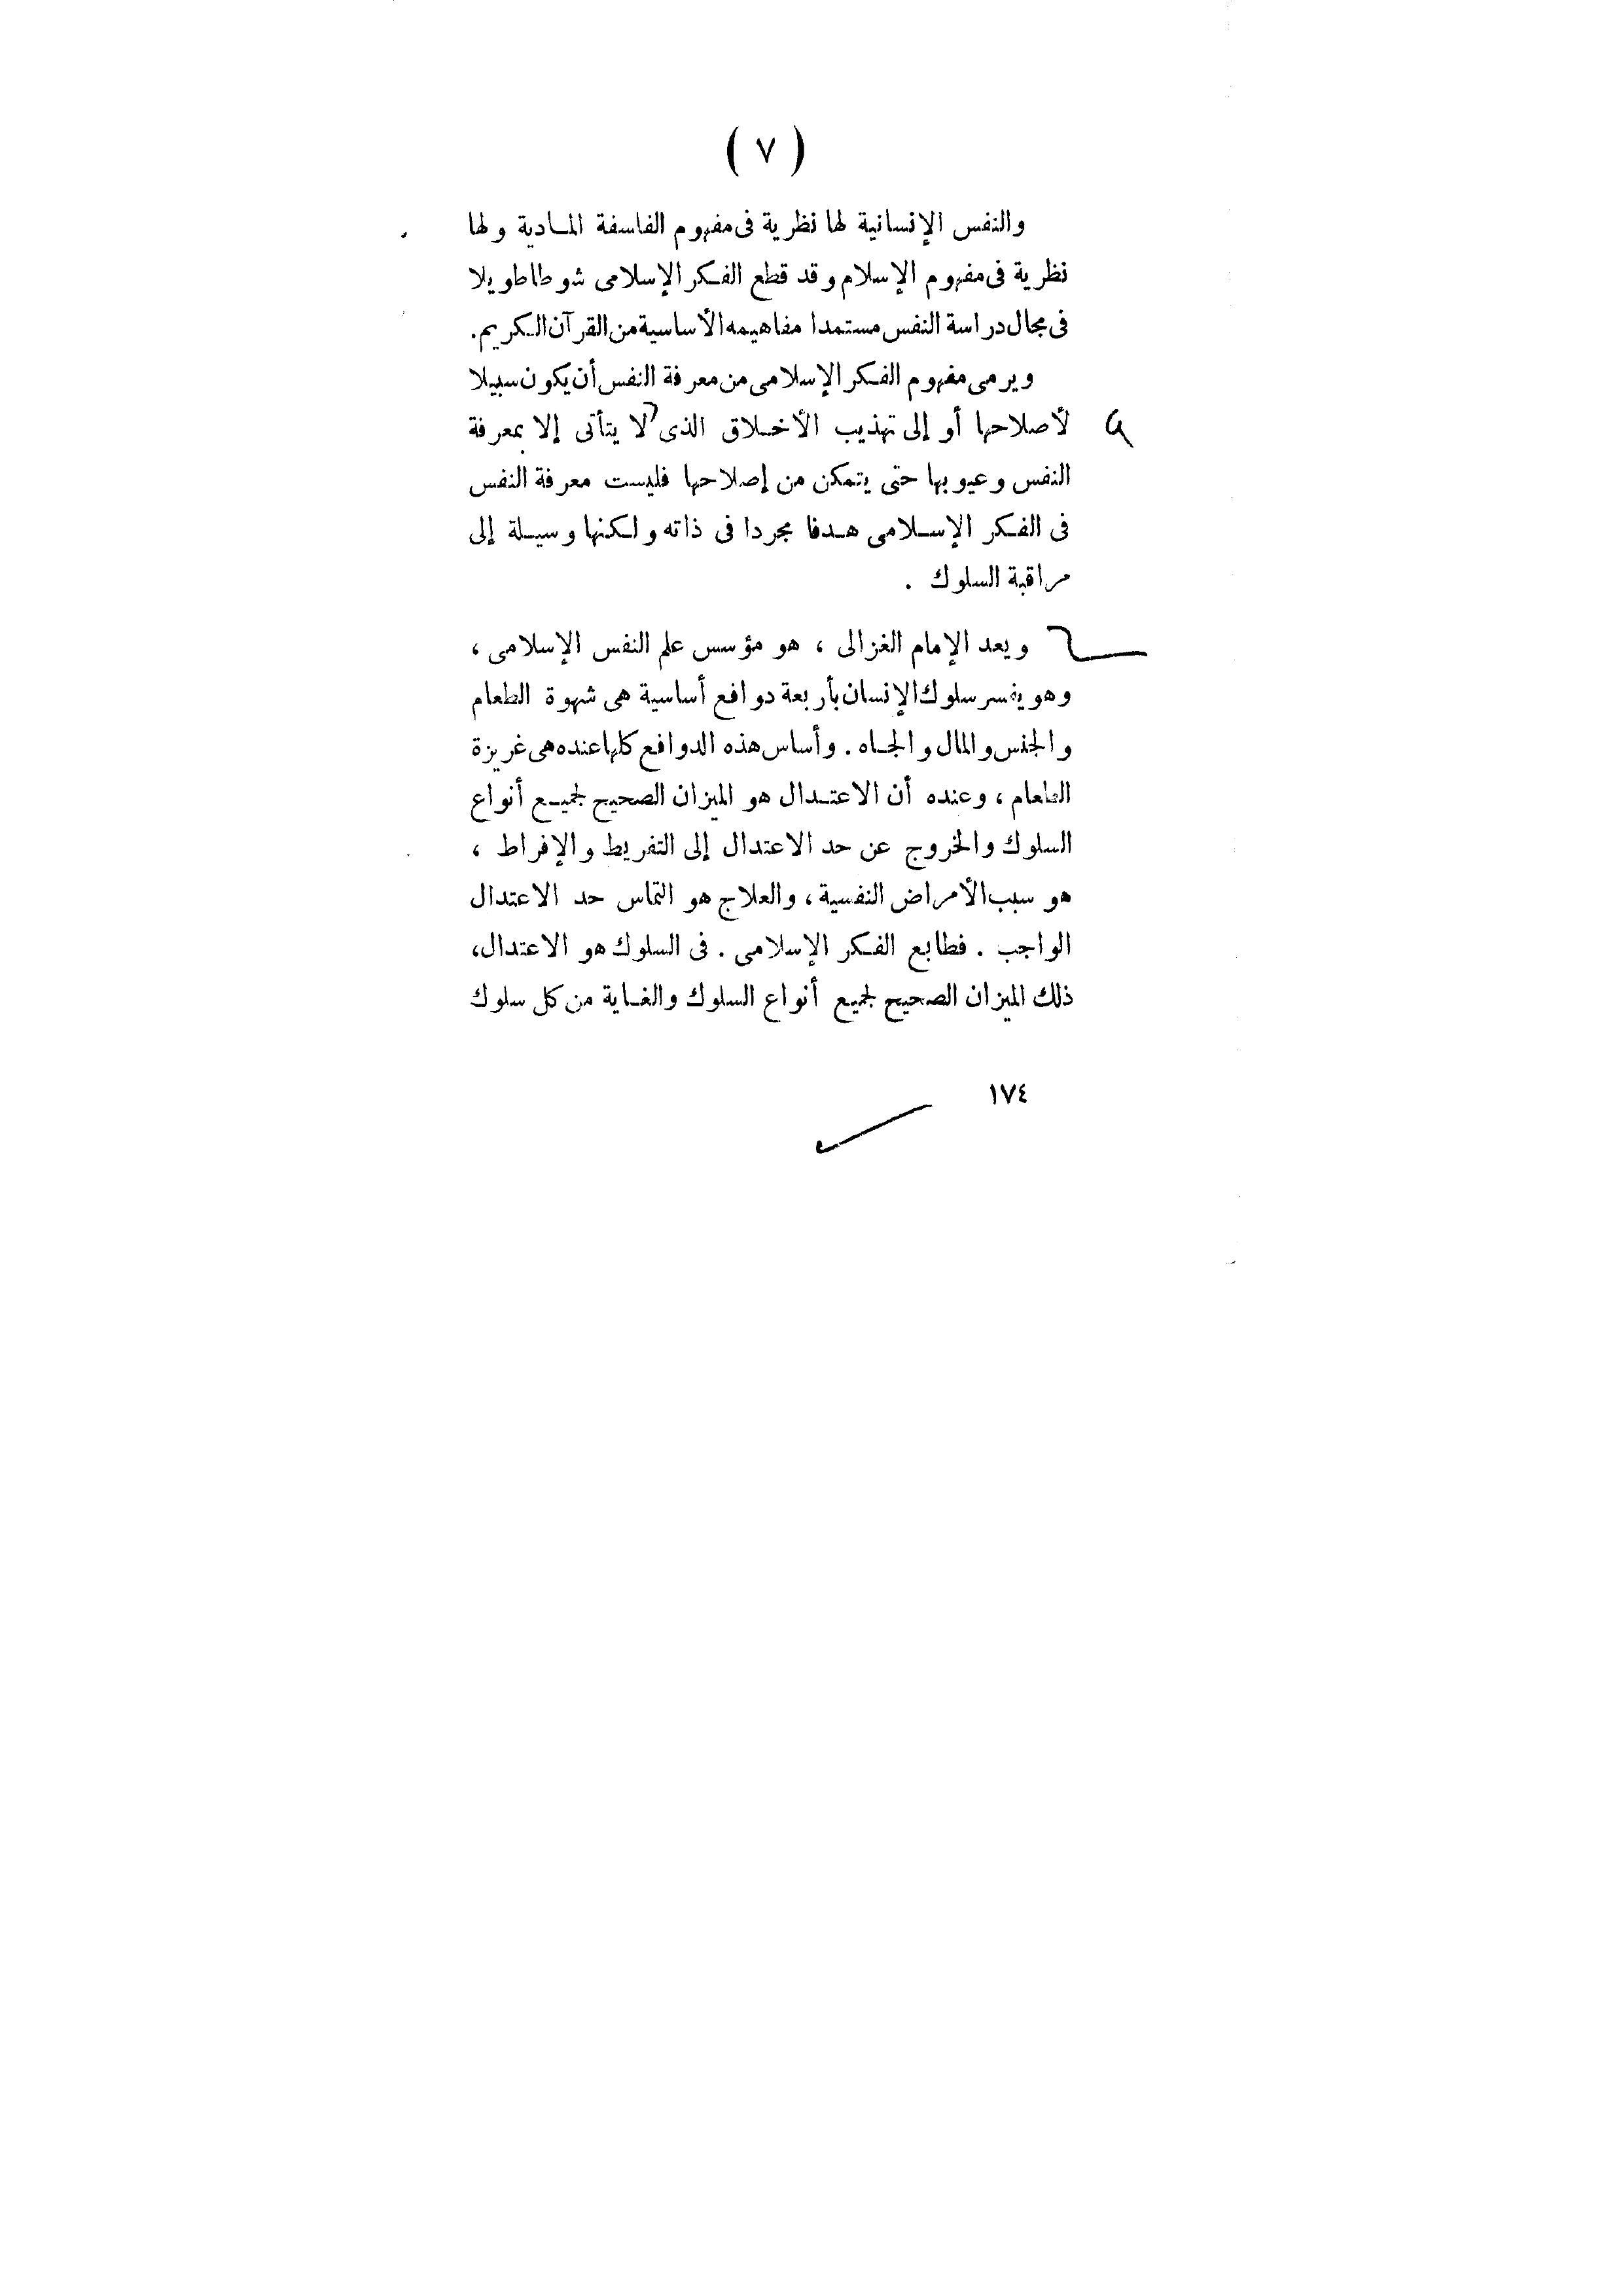 ( ٧ )
والنفس الإنسانية لها نظرية فى مفهوم الفلسفة المادية ولها
نظرية فى مفهوم الإسلام وقد قطع الفكر الإسلامى شوطا طويلا
فى مجال دراسة النفس مستمدا مفاهيمه الأساسية من القرآن الكريم.
ويرمى مفهوم الفكر الإسلامى من معرفة النفس أن يكون سبيلا
لأصلاحها أو إلى تهذيب الأخلاق الذى لا يتأتى إلا بمعرفة
النفس وعيوبها حتى يتمكن من إصلاحها فليست معرفة النفس
فى الفكر الإسلامى هدفا مجردا فى ذاته ولكنها وسيلة إلى
مراقبة السلوك .
ويعد الإمام الغزالى ، هو مؤسس علم النفس الإسلامى ،
وهو يفسر سلوك الإنسان بأربعة دوافع أساسية هى شهوة الطعام
والجنس والمال والجاه . وأساس هذه الدوافع كلها عنده هى غريزة
الطعام ، وعنده أن الاعتدال هو الميزان الصحيح لجميع أنواع
السلوك والخروج عن حد الاعتدال إلى التفريط والإفراط ،
هو سبب الأمراض النفسية ، والعلاج هو التماس حد الاعتدال
الواجب . فطابع الفكر الإسلامى . فى السلوك هو الاعتدال،
ذلك الميزان الصحيح لجميع أنواع السلوك والغاية من كل سلوك
١٧٤